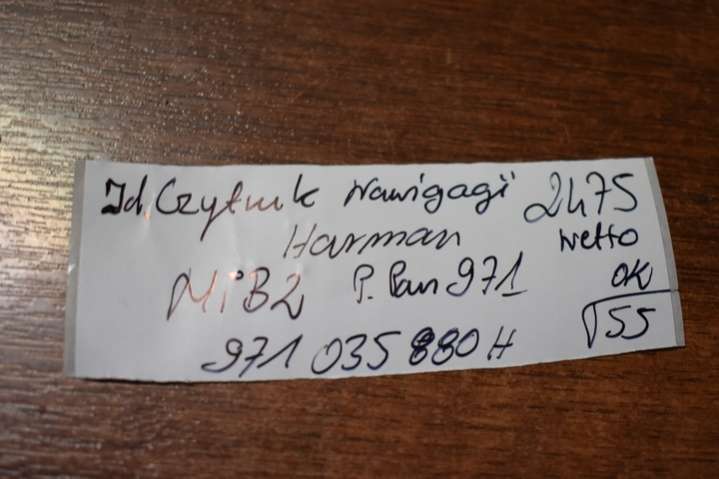 Jd. Czytnik Nawigagii 2475
Harman netto
MiB2 P. Pan 971 OK
971 035 880 H √55